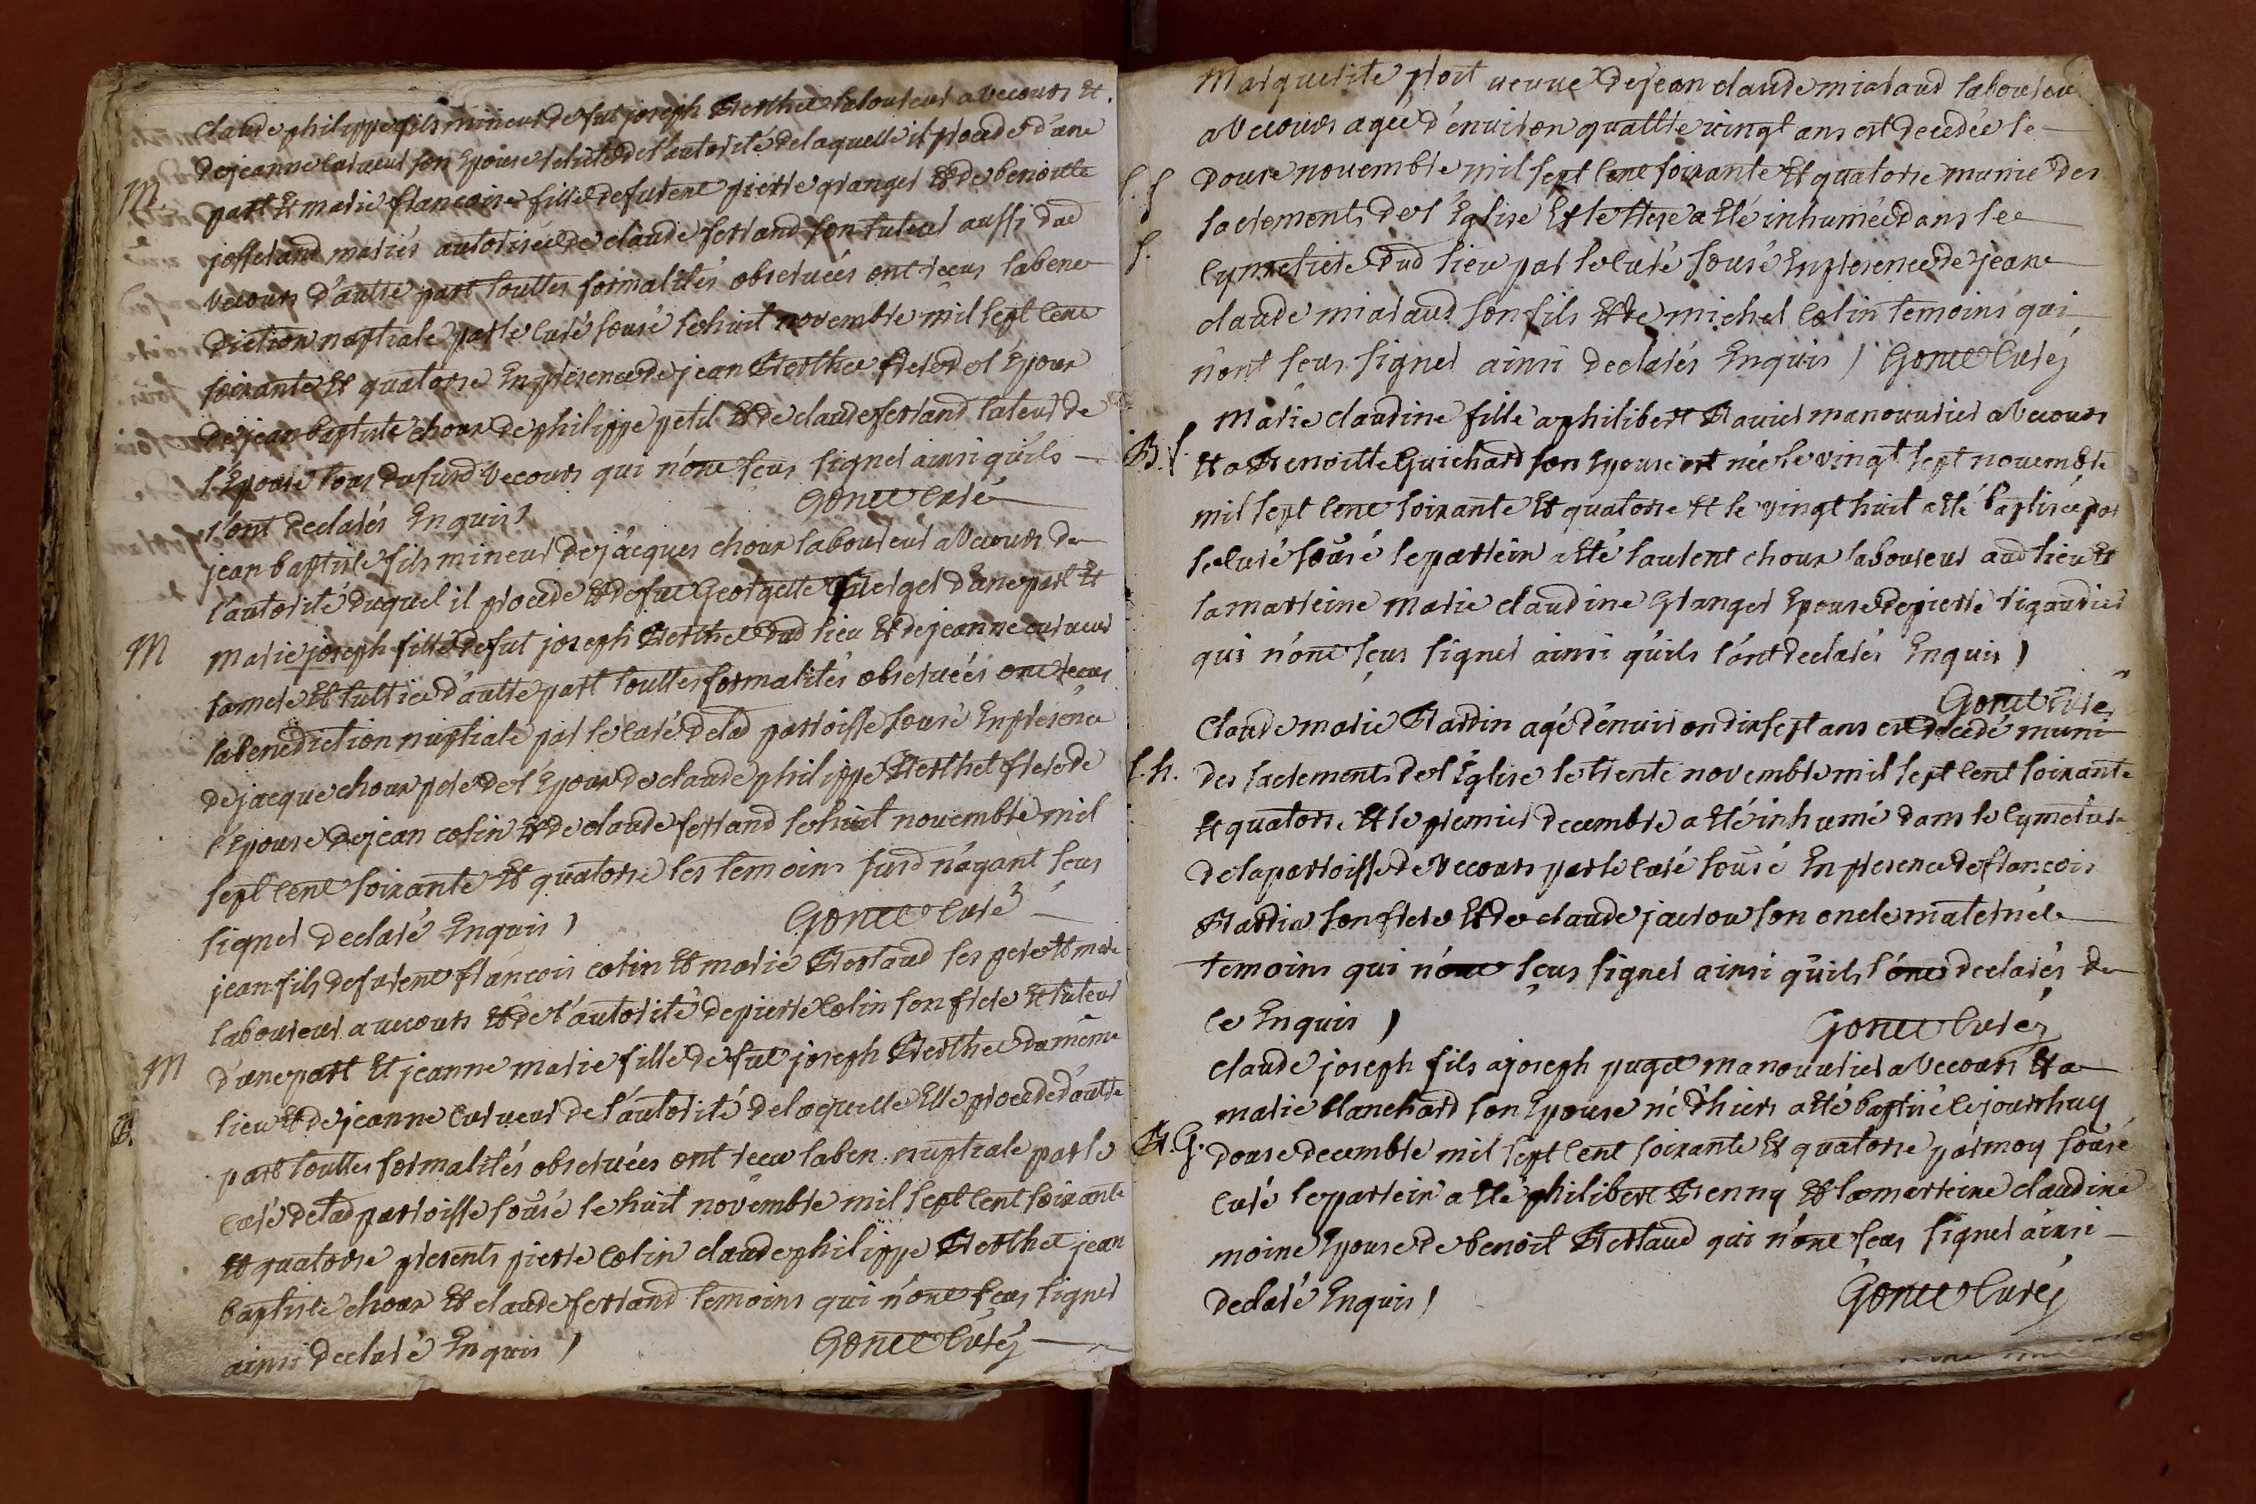 claude philippe fils mineur de fut joseph Berthet laboureur a Vecours Et
de jeanne curveur son Epouse de l'autorité de laquelle il procede d'une
M.
part Et marie francoise fille de furent pierre granger Et de benoitte
josserand mariés autorisée de claude ferrand son tuteur aussi dud
Vecours d'autre part touttes formalités observées ont recus la bene
diction nuptiale par le curé sousé le huit novembre mil sept cent
soixante Et quatorse En presence de jean Berthet frere de l'Epoux
de jean baptiste choux de philippe petit Et de claude ferrand tuteur de
l'Epouse tous du susd Vecours qui n'ont scus signer ainsi qu'ils
l'ont declarés Enquis)
Gonet Curé
jean baptiste fils mineur de jacques choux laboureur a Vecours de
l'autorité duquel il procede Et de fue Georgette d'une part Et
M
marie joseph fille de fut joseph Berthet dud lieu Et de jeanne curveur
sa mere Et tutrice d'autre part touttes formalités observées ont recus
la benediction nuptiale par le curé de lad parroisse sousé En presence
de jacque choux pere de l'Epoux de claude philippe Berthet frere de
l'Epouse de jean colin Et de claude ferrand le huit novembre mil
sept cent soixante Et quatorse les temoins susd n'ayant scus
signer declaré Enquis)
Gonet Curé
jean fils de furent francois colin Et marie Bertaud ses pere Et mere
laboureur a vecours Et de l'autorité de pierre Colin son frere Et tuteur
M
d'une part Et jeanne marie fille de fut joseph Berthet du même
lieu Et de jeanne Curveur de l'autorité de laquelle Elle procede d'autre
B.
part touttes formalités observées ont recu la ben. nuptiale par le
curé de lad parroisse sousé le huit novembre mil sept cent soixante
Et quatorse presents pierre Colin claude philippe Berthet jean
baptiste choux Et claude ferrand temoins qui n'ont scus signer
ainsi declaré Enquis)
Gonet Curé
Marguerite piroit veuve de jean claude miaraud laboureur
a Vecours agée d'environ quattre vingt ans est decedée le
S.
douse novembre mil sept cent soixante Et quatorse munie des
sacrements de l'Eglise Et le trese a Eté inhumée dans le
S.
cymetiere dud lieu par le curé sousé En presence de jean
claude miaraud son fils Et de michel Colin temoins qui
n'ont scus signer ainsi declarés Enquis) Gonet Curé
Marie claudine fille a philibert Bavier manouvrier a Vecours
B.f.
Et a Benoitte Guichard son Epouse est née le vingt sept novembre
mil sept cent soixante Et quatorse Et le vingt huit a Eté baptisée par
le curé sousé le parrein a Eté laurent choux laboureur aud lieu Et
la marreine marie claudine Granger Epouse de pierre rigaudier
qui n'ont scus signer ainsi qu'ils l'ont declarés Enquis)
Gonet Curé
Claude marie Bardin agé d'environ dix sept ans est decedé muni
S.h.
des sacrements de l'Eglise le trente novembre mil sept cent soixante
Et quatorse Et le premier decembre a Eté inhumé dans le cymetiere
de la parroisse de Vecours par le curé sousé En presence de francois
Bardin son frere Et de claude jacrou son oncle maternele
temoins qui n'ont scus signer ainsi qu'ils l'ont declarés de
ce Enquis)
Gonet Curé
claude joseph fils a joseph puget manouvrier a Vecours Et a
marie blanchard son Epouse né d'hiers a Eté baptisé ce jourdhuy
B.G.
douse decembre mil sept cent soixante Et quatorse par moy sousé
curé le parrein a Eté philibert Benny Et la marreine claudine
moine Epouse de benoit Bertaud qui n'ont scus signer ainsi
declaré Enquis)
Gonet Curé